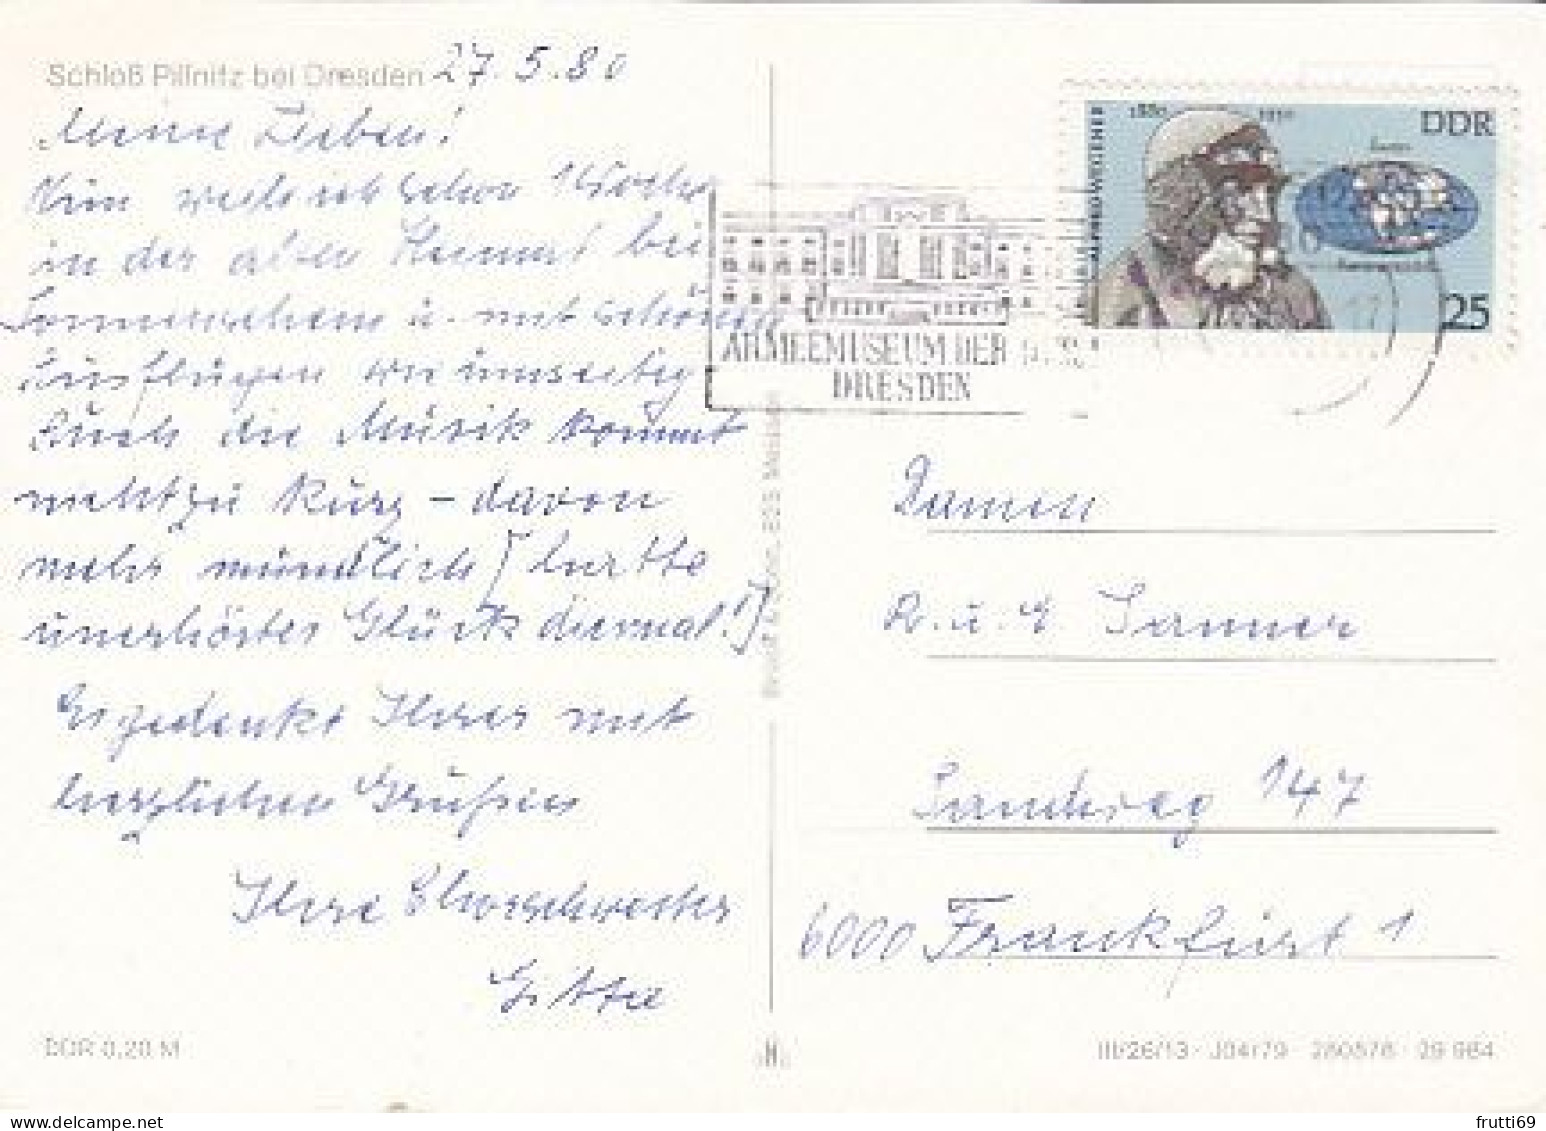 Schloß Pillnitz bei Dresden 27.5.80
Meine Lieben!
Nun weile ich schon 1 Woche
in der alten Heimat bei
Sonnenschein u. mit schönen
Ausflügen
Auch die Musik kommt
nicht zu kurz – davon
mehr mündlich (hatte
unerhörtes Glück diesmal!)
Es gedenkt Ihrer mit
herzlichen Grüßen
Ihre Chorschwester
Gitta
DDR 0,20 M
ALFRED WEGENER
1880 1930
DDR
25
ARMEEMUSEUM DER DDR
DRESDEN
Damen
R. u. E. Sanner
Sandweg 147
6000 Frankfurt 1
III/26/13 · J04/79 · 280578 · 29 984
frutti69